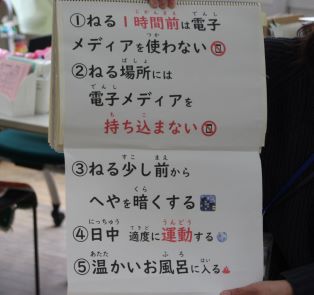 ①ねる1時間前は電子
メディアを使わない
②ねる場所には
電子メディアを
持ち込まない
③ねる少し前から
へやを暗くする
④日中 適度に運動する
⑤温かいお風呂に入る